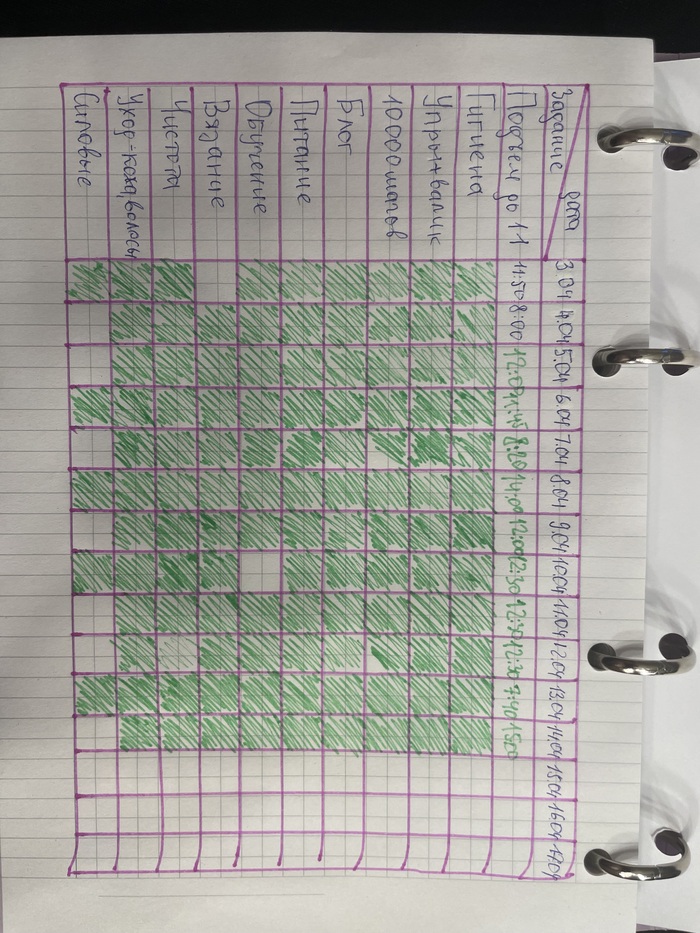 Задание дата 3.04 4.04 5.04 6.04 7.04 8.04 9.04 10.04 11.04 12.04 13.04 14.04 15.04 16.04 17.04
Подъем до 11 11:50 8:00 12:00 11:45 8:20 14:00 12:00 12:30 12:30 12:30 7:40 15:20
Гигиена
Упр.+валик
10000 шагов
Блог
Питание
Обучение
Вязание
Чистота
Уход-кожа,волосы
Силовые